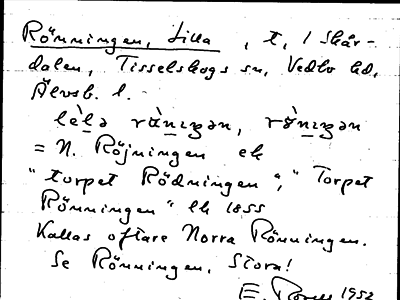 Rönningen, Lilla, t, i Skår-
dalen, Tisselskogs sn, Vedbo hd,
Älvsb. l.
= N. Röjningen ek
"torpet Rödningen", "Torpet
Rönningen" lk 1855
Kallas oftare Norra Rönningen.
Se Rönningen, Stora!
E. 1952